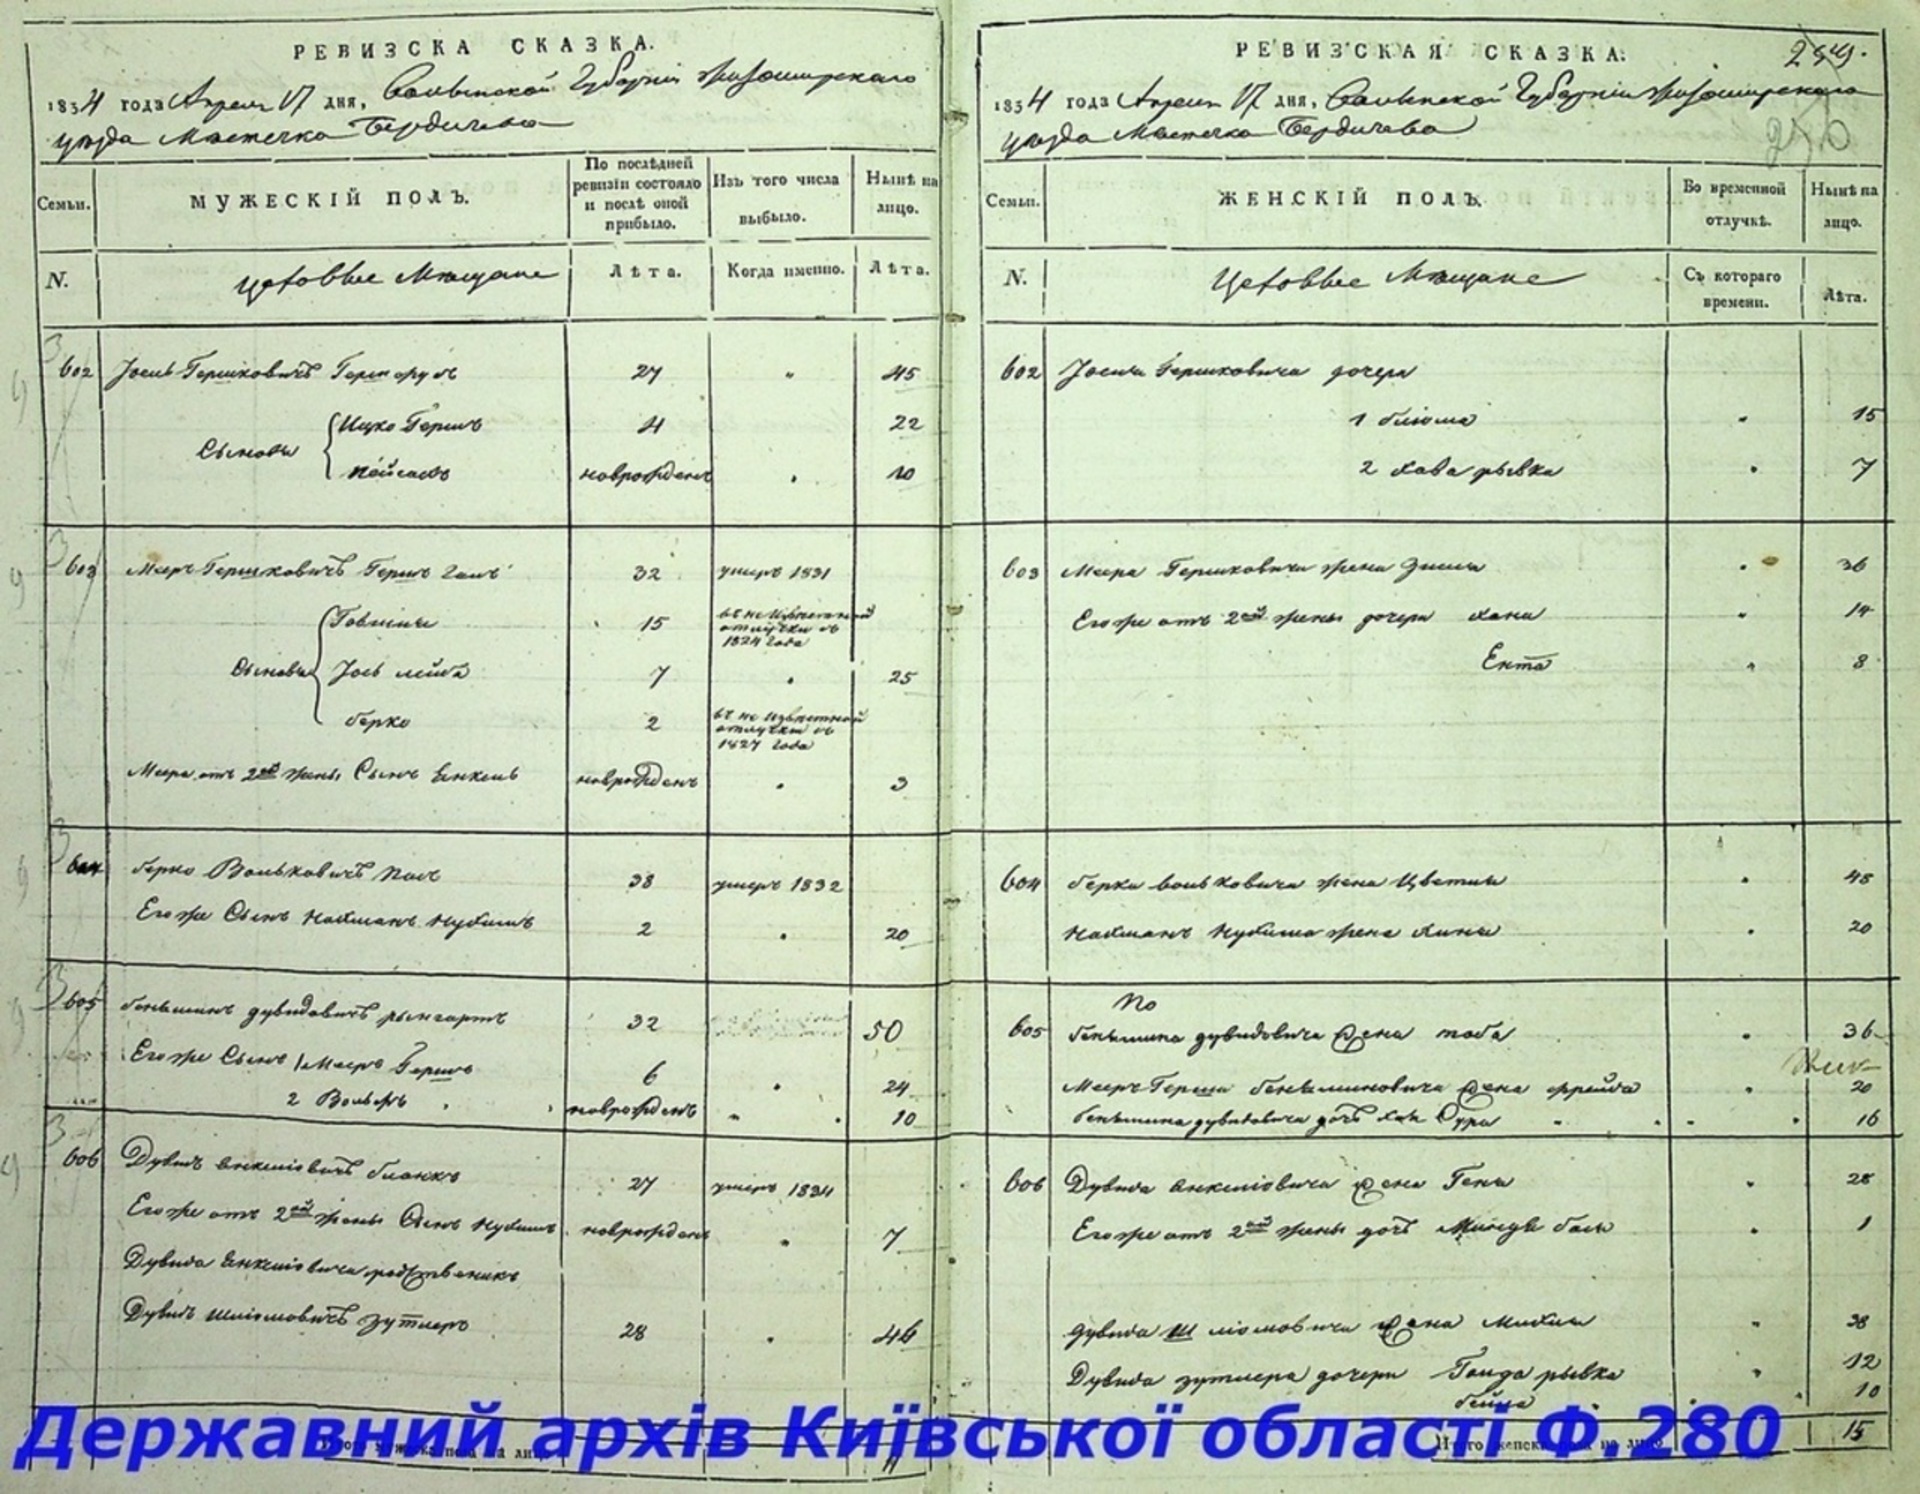 РЕВИЗСКА СКАЗКА.
1834 года Апреля 17 дня, Волынской Губернии Житомирского
уезда Местечка Бердичева
Семьи.
МУЖЕСКІЙ ПОЛЪ.
По послѣдней ревизіи состояло и послѣ оной прибыло.
Изъ того числа выбыло.
Нынѣ на лицо.
N.
Цеховые Мещане
Лѣта.
Когда именно.
Лѣта.
602 Іось Гершковичъ 27 " 45
Сыновья Ицко Гершъ 4 22
Пейсахъ новорожденъ " 10
603 Мееръ Гершковичъ Гершъ 32 умеръ 1831
Сыновья 15 въ неизвестной отлучки съ 1824 года
Іось лейба 7 " 25
берко 2 въ неизвестной отлучки съ 1827 года
Меера отъ 2ой жены Сынъ Янкель новорожденъ " 3
604 берко Вольковичъ 38 умеръ 1832
Его же Сынъ Нахманъ 2 " 20
605 беньминъ дувидовичъ 32 50
Его же Сынъ 1 Мееръ Гершъ 6 " 24
2 Вольфъ новорожденъ " 10
606 Дувидъ Янкеліовичъ бланкъ 27 умеръ 1831
Его же отъ 2ой жены Сынъ новорожденъ " 7
Дувида Янкеліовича родственикъ
Дувидъ Шліомовичъ зутлеръ 28 " 46
Итого мужеска пола на лицо 11
РЕВИЗСКАЯ СКАЗКА.
1834 года Апреля 17 дня, Волынской Губернии Житомирского
уезда Местечка Бердичева
Семьи.
ЖЕНСКІЙ ПОЛЪ.
Во временной отлучкѣ.
Нынѣ на лицо.
N.
Цеховые Мещане
Съ котораго времени.
Лѣта.
602 Іося Гершковича дочери
1 блюма " 15
2 хава рывка " 7
603 Меера Гершковича жена " 36
Его же отъ 2ой жены дочери хана " 14
Ента " 8
604 берка вольковича жена Цветля " 48
Нахманъ жена " 20
605 беньмина дувидовича жена тоба " 36
Мееръ Герша беньминовича жена фрейда " 20
беньмина дувидовича дочь Сура " 16
606 Дувида Янкеліовича жена " 28
Его же отъ 2ой жены дочь " 1
дувида Шліомовича жена " 38
Дувида зутлера дочери рывка " 12
бейла " 10
Итого женска пола на лицо 15
Державний архів Київської області Ф.280